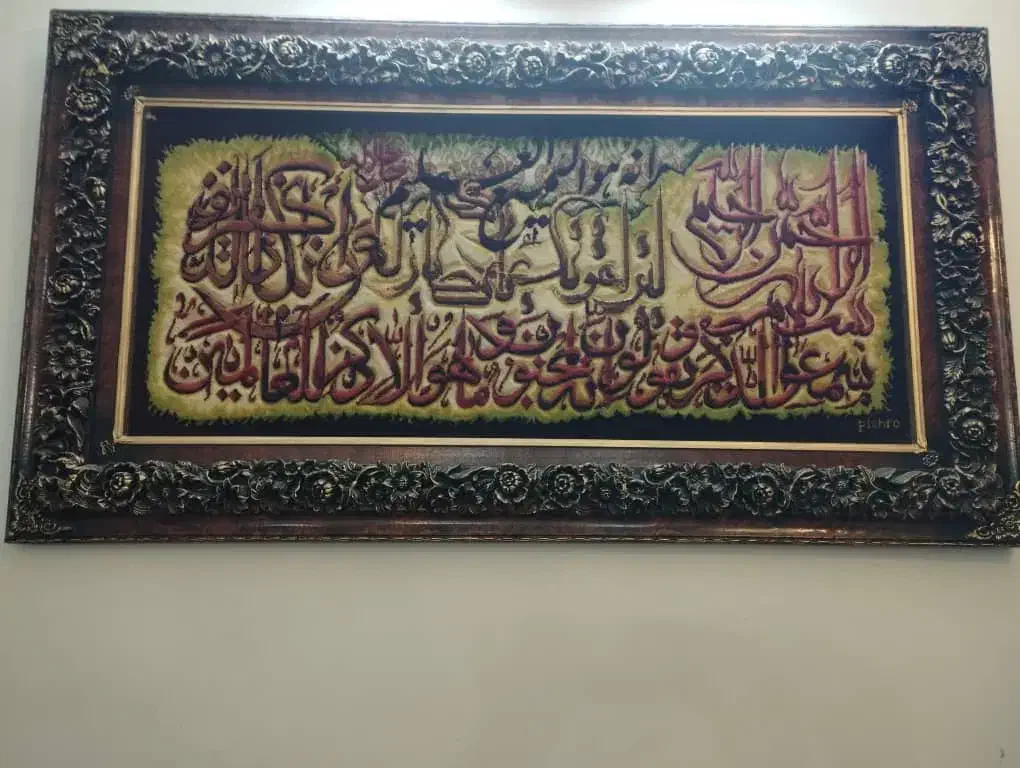 بسم الله الرحمن الرحيم
وان يكاد الذين كفروا ليزلقونك بابصارهم لما
سمعوا الذكر ويقولون انه لمجنون وما هو الا ذكر للعالمين
pishro